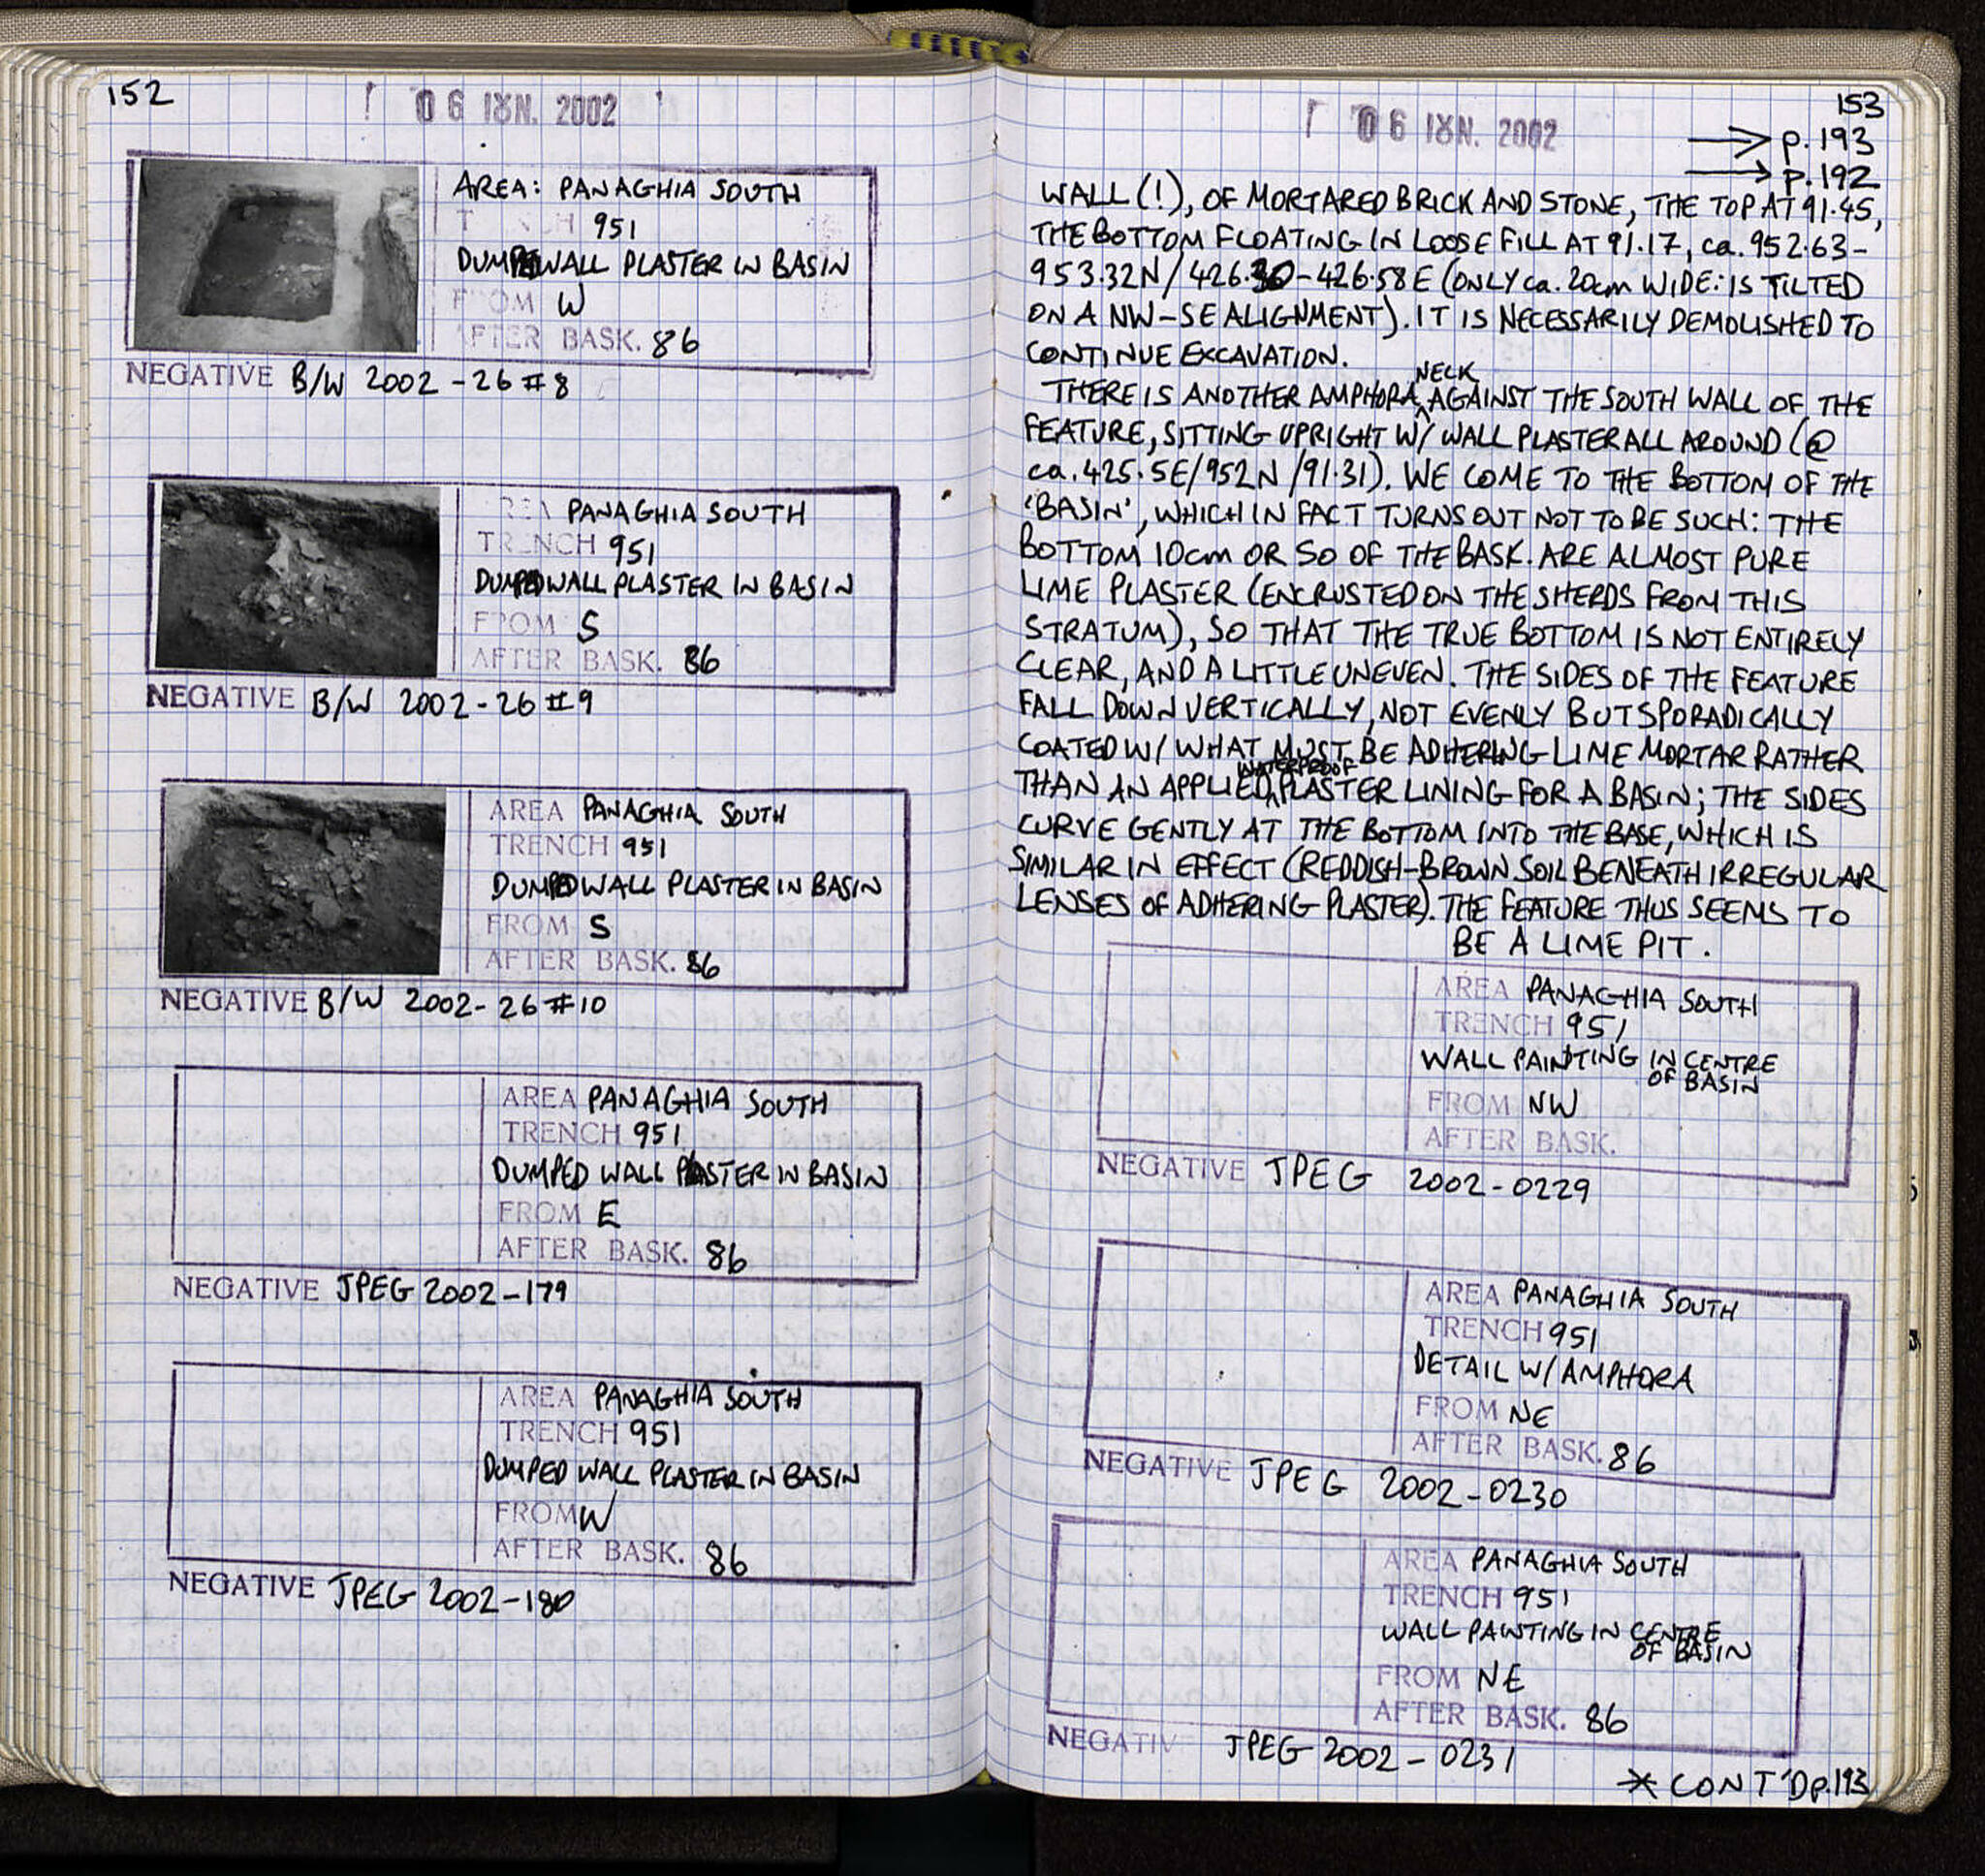 152
06 ΙΟΥΝ. 2002
AREA: PANAGHIA SOUTH
951
DUMPED WALL PLASTER IN BASIN
FROM W
AFTER BASK. 86
NEGATIVE B/W 2002-26 #8
PANAGHIA SOUTH
TRENCH 951
DUMPED WALL PLASTER IN BASIN
FROM S
AFTER BASK. 86
NEGATIVE B/W 2002-26 #9
AREA PANAGHIA SOUTH
TRENCH 951
DUMPED WALL PLASTER IN BASIN
FROM S
AFTER BASK. 86
NEGATIVE B/W 2002-26 #10
AREA PANAGHIA SOUTH
TRENCH 951
DUMPED WALL PLASTER IN BASIN
FROM E
AFTER BASK. 86
NEGATIVE JPEG 2002-179
AREA PANAGHIA SOUTH
TRENCH 951
DUMPED WALL PLASTER IN BASIN
FROM W
AFTER BASK. 86
NEGATIVE JPEG 2002-180
153
06 ΙΟΥΝ. 2002
→ p.193
→ p.192
WALL (!), OF MORTARED BRICK AND STONE, THE TOP AT 91.45,
THE BOTTOM FLOATING IN LOOSE FILL AT 91.17, ca. 952.63-
953.32N / 426.30-426.58E (ONLY ca. 20cm WIDE: IS TILTED
ON A NW-SE ALIGNMENT). IT IS NECESSARILY DEMOLISHED TO
CONTINUE EXCAVATION.
THERE IS ANOTHER AMPHORA NECK AGAINST THE SOUTH WALL OF THE
FEATURE, SITTING UPRIGHT W/ WALL PLASTER ALL AROUND (@
ca. 425.5E/952N/91.31). WE COME TO THE BOTTOM OF THE
'BASIN', WHICH IN FACT TURNS OUT NOT TO BE SUCH: THE
BOTTOM 10cm OR SO OF THE BASK. ARE ALMOST PURE
LIME PLASTER (ENCRUSTED ON THE SHERDS FROM THIS
STRATUM), SO THAT THE TRUE BOTTOM IS NOT ENTIRELY
CLEAR, AND A LITTLE UNEVEN. THE SIDES OF THE FEATURE
FALL DOWN VERTICALLY, NOT EVENLY BUT SPORADICALLY
COATED W/ WHAT MUST BE ADHERING LIME MORTAR RATHER
THAN AN APPLIED WATERPROOF PLASTER LINING FOR A BASIN; THE SIDES
CURVE GENTLY AT THE BOTTOM INTO THE BASE, WHICH IS
SIMILAR IN EFFECT (REDDISH-BROWN SOIL BENEATH IRREGULAR
LENSES OF ADHERING PLASTER). THE FEATURE THUS SEEMS TO
BE A LIME PIT.
AREA PANAGHIA SOUTH
TRENCH 951
WALL PAINTING IN CENTRE
OF BASIN
FROM NW
AFTER BASK.
NEGATIVE JPEG 2002-0229
AREA PANAGHIA SOUTH
TRENCH 951
DETAIL W/ AMPHORA
FROM NE
AFTER BASK. 86
NEGATIVE JPEG 2002-0230
AREA PANAGHIA SOUTH
TRENCH 951
WALL PAINTING IN CENTRE
OF BASIN
FROM NE
AFTER BASK. 86
NEGATIVE JPEG 2002-0231
* CONT'D p.193